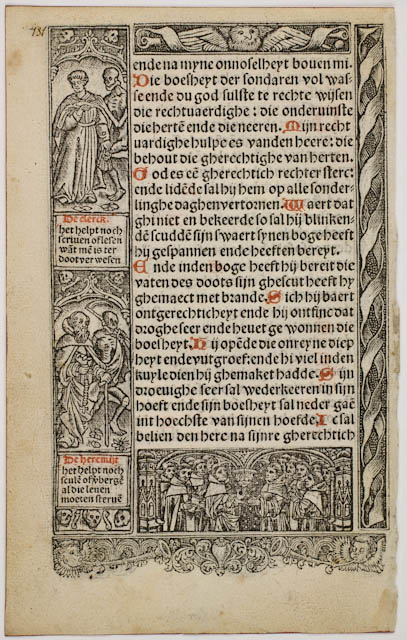 131
ende na myne onnoselheyt bouen mi.
Die boesheyt der sondaren vol was-
se ende du god sulste te rechte wijsen
die rechtuaerdighe: die onderuinste
die hertē ende die neeren. Mijn recht
uardighe hulpe es van den heere: die
behout die gherechtighe van herten.
God es eē gherectich rechter sterc:
ende lidēde sal hij hem op alle sonder-
linghe daghen vertornen. Waert dat
ghi niet en bekeerde so sal hij blinken-
dē scuddē sijn swaert synen boge heeft
hij gespannen ende heeften bereyt.
Ende inden boge heeft hij bereit die
vaten des doots sijn ghescut heeft hy
ghemaect met brande. Sich hij baert
ontgerecticheyt ende hij ontfinc dat
droghe seer ende heuet ge wonnen die
boesheyt. Hij opēde die onreyne diep
heyt ende vut groef: ende hi viel inden
kuyle dien hij ghemaket hadde. Sijn
droeuighe seer sal wederkeeren in sijn
hoeft ende sijn boesheyt sal neder gaē
int hoechste van sijnen hoefde. Ic sal
belien den here na sijnre gherechtich
De clerck.
het helpt noch
scriuen of lesen
wāt mē is ter
doot ver wesen
De heremijt
het helpt noch
sculē of v̄bergē
al die leuen
moeten steruē